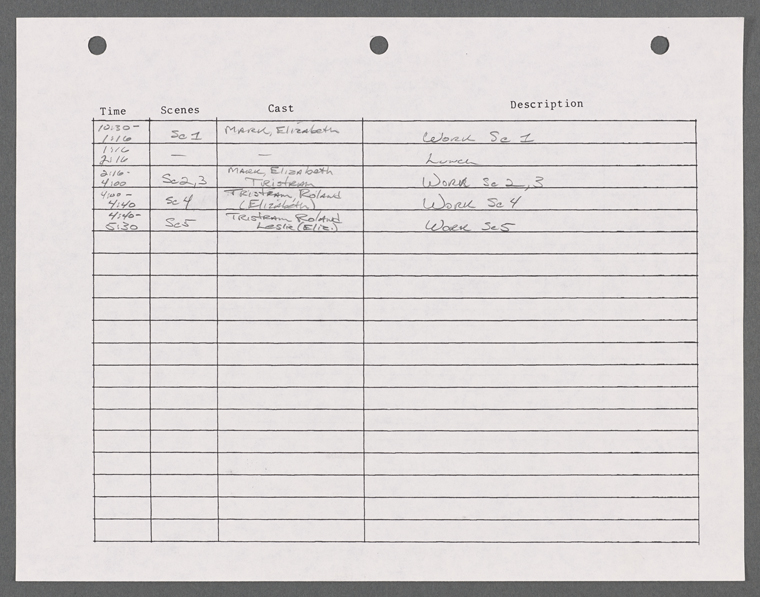 Time Scenes Cast Description
10:30-
1:16 Sc 1 Mark, Elizabeth Work Sc 1
1:16
2:16 — — Lunch
2:16- Mark, Elizabeth
4:00 Sc 2, 3 Tristram Work Sc 2, 3
4:00- Tristram, Roland
4:40 Sc 4 (Elizabeth) Work Sc 4
4:40- Tristram Roland
5:30 Sc5 Leslie (Eliz.) Work Sc5